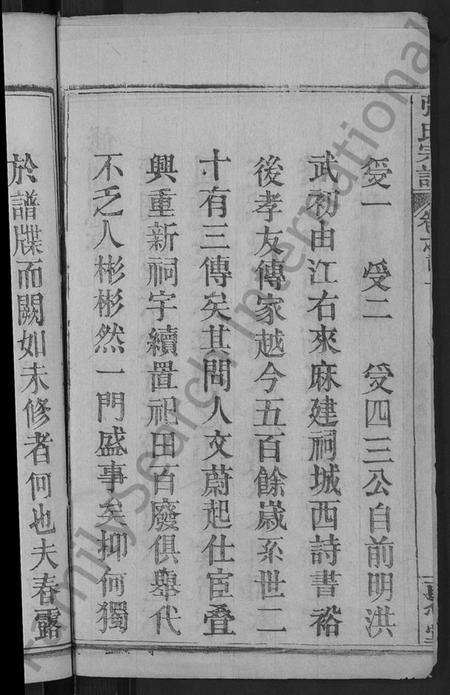 張氏宗譜 卷之首一
受一 受二 受四三公自前明洪
武初由江右來麻建祠城西詩書裕
後孝友傳家越今五百餘歲系世二
十有三傳矣其間人文蔚起仕宦疊
興重新祠宇續置祀田百廢俱舉代
不乏人彬彬然一門盛事矣抑何獨
於譜牒而闕如未修者何也夫春露
FamilySearch International